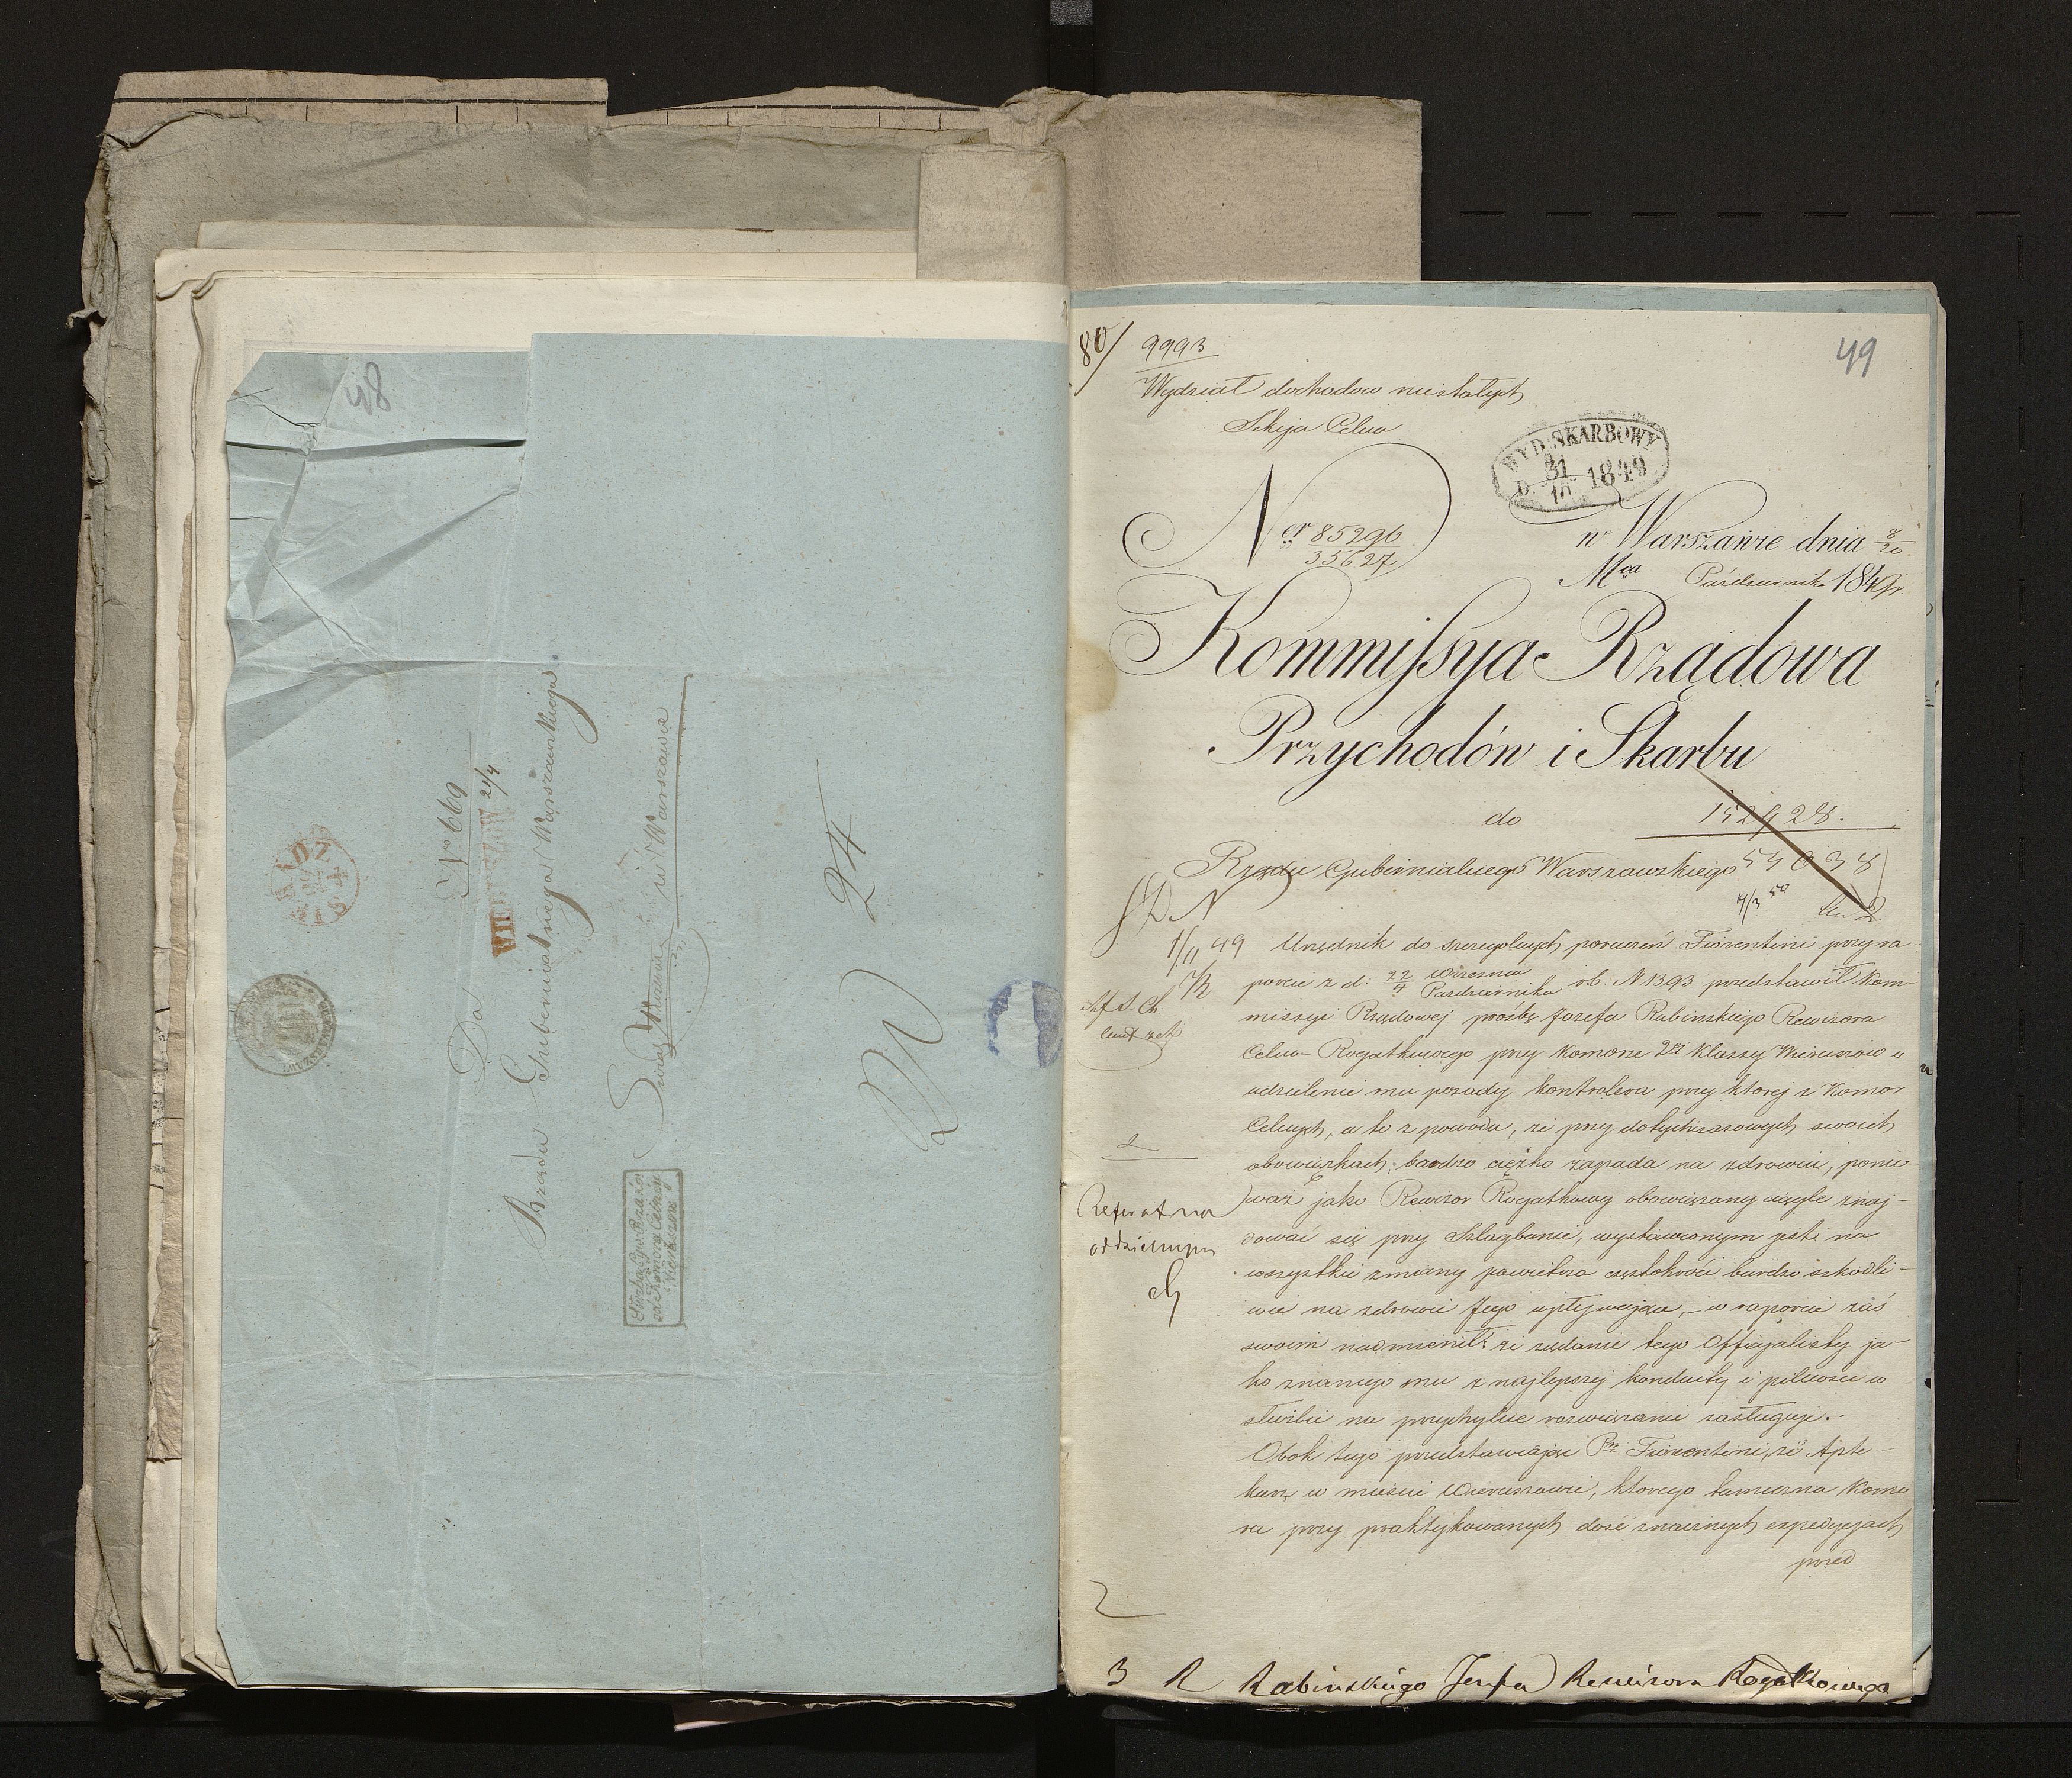 48
No 669
21/4
WIERUSZÓW
Do
Rządu Gubernialnego Warszawskiego
w Warszawie
24
Służba Rządowa
80/
9993
49
Wydział dochodow niestałych
Sekcja Celna
WYD. SKARBOWY
D. 31/10 1849
Ner 85296
35627
w Warszawie dnia 8/20
Mca Października 1849 r.
Kommissya Rządowa
Przychodów i Skarbu
do
152428.
Rządu Gubernialnego Warszawskiego
54038
7/3 50
1/11 49
Urzędnik do szczególnych poruczeń Fiorentini przy ra-
porcie z d. 22 Września / 4 Października r.b. N 1393 przedstawił Kom-
missyi Rządowej prośbę Jozefa Rabinskiego Rewizora
Celno-Rogatkowego przy Komorze 2ej Klassy Wieruszów o
udzielenie mu posady kontrolera przy ktorej z Komor
Celnych, a to z powodu, że przy dotychczasowych swoich
obowiązkach, bardzo ciężko zapada na zdrowiu, ponie-
waż jako Rewizor Rogatkowy obowiązany ciągle znaj-
dować się przy Szlagbanie, wystawionym jest na
wszystkie zmiany powietrza częstokroć bardzo szkodli-
wie na zdrowie Jego wpływające, - w raporcie zaś
swoim nadmienił: że żądanie tego Officyalisty ja-
ko znanego mu z najlepszej konduity i pilności w
służbie na przychylne rozwiązanie zasługuje.
Obok tego przedstawiając Pn Fiorentini, że Apte-
karz w mieście Wieruszowie, ktorego tameczna Komo
ra przy praktykowanych dość znacznych expedycyach
przed
2
Referat na
oddzielnym
3 R Rabinskiego Jozefa Rewizora Rogatkowego